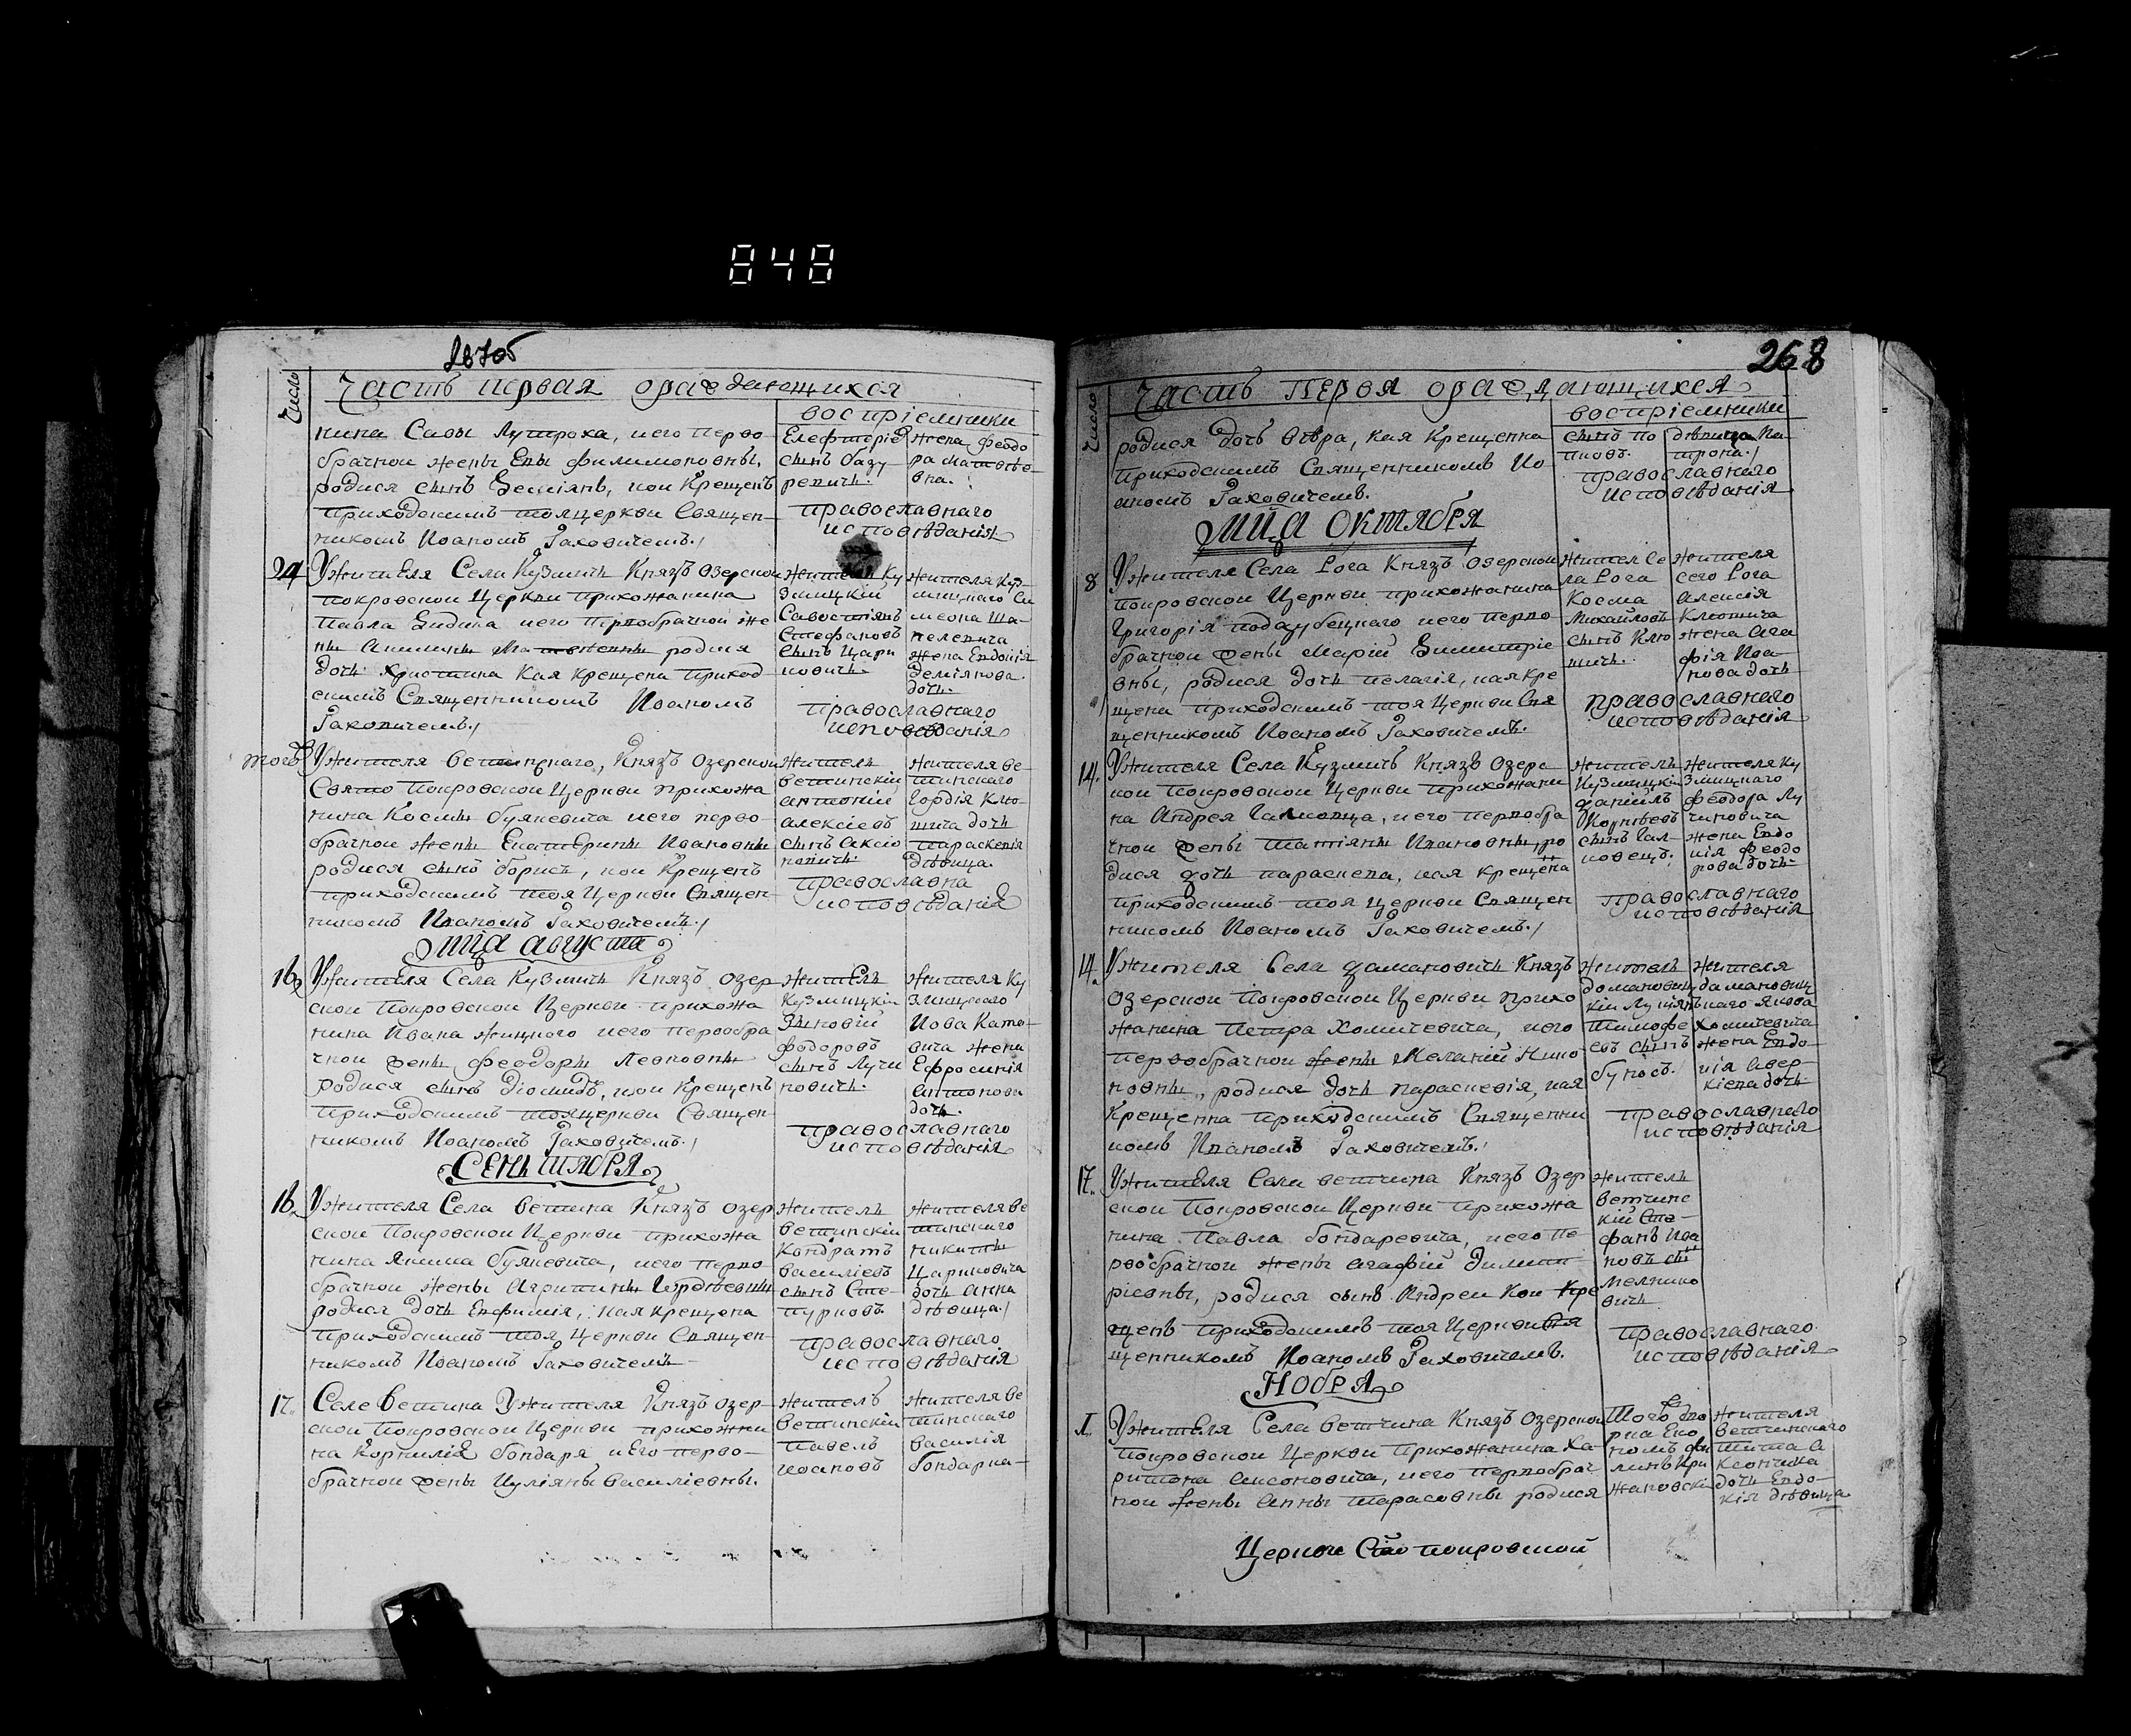 848
268
число
Часть первая ораждающихся
воспріемники
нина Савы Лутроха, иего перво-
брачной жены Евы Филимоновны,
родися сынъ Демiянъ, кои Крещенъ
приходскимъ тояцеркви Священ-
никомъ Иоаномъ Раховичемъ./
Елефторiе
сынъ базу
ревичъ.
жена Феодо
ра Матвѣе-
вна.
православнаго
исповѣданiя
24 Ужителя Села Кузмичъ Князъ озерской
покровской Церкви прихожанина
Павла иего первобрачной же
ны Акилины родися
дочь христина Кая Крещена приход
скимъ Священникомъ Иоаномъ
Раховичемъ./
житель Ку
змицкiй
Савостiянъ
Стефановъ
сынъ Цари
ковичъ.
жителя Куз-
мицкаго Си
меона Ша-
пелевича
жена Евдокiя
Демiянова
дочь.
православнаго
исповѣданiя
тогожъ Ужителя ветчинскаго, Князъ Озерской
Свято Покровской Церкви прихожа
нина Космы буякевича иего перво-
брачной жены Екатерины Ивановны
родися сынъ борисъ, кои Крещенъ
приходскимъ тоя Церкви Священ-
никомъ Иоаномъ Раховичемъ./
житель
ветинскiй
антонiй
алексiевъ
сынъ Аксю
ковичъ.
жителя ве-
тинскаго
Гордiя Клю-
шича дочь
параскевiя
дѣвица.
православна
исповѣданiя
мца августа
16 Ужителя Села Кузмичъ Князъ озер
ской Покровской Церкви прихожа
нина Ивана жицкого иего первобра
чной жены Феодоры Левковны
родися сынъ Дiомидъ, кои Крещенъ
приходскимъ тояцеркви Священ
никомъ Иоаномъ Раховичемъ./
житель
Кузмицкiй
Зиновiй
Федоровъ
сынъ Лучи
новичъ.
жителя Ку
змицкаго
Иова Като-
вича жена
Ефросинiя
антонова
дочь.
православнаго
исповѣданiя
Сеньтября
16 Ужителя Села Ветчина Князъ озер
ской Покровской Церкви прихожа
нина Якима буякевича, иего перво
брачной жены Агрипины Гордѣевны
родися дочь Евфимiя, кая Крещена
приходскимъ тоя Церкви Священ-
никомъ Иоаномъ Раховичемъ
житель
ветинскiй
Кондратъ
василiевъ
сынъ Сте-
пурковъ
жителя Ве
тинского
никиты
Цариковича
дочь анна
дѣвица./
православнаго
исповѣданiя
17. Селе ветчина Ужителя Князъ озер-
ской Покровской Церкви прихожани
на Корнилiя бондаря иего перво-
брачной жены Иулiяны Василiевны.
житель
ветинскiй
Павелъ
иоановъ
жителя ве
тинского
василiя
бондаря-
число
Часть Первоя ораждающихся
воспрiемники
родися дочь вѣра, кая Крещенна
приходскимъ Священникомъ Ио-
аномъ Раховичемъ.
сынъ по
пковъ.
дѣвица Ма-
трона./
православнаго
исповѣданiя
мца Октября
8 Ужителя Села Рога Князъ озерской
покровской Церкви прихожанина
Григорiя поддубецкаго иего перво
брачной жены Марiи Димитрiе
вны, родися дочь пелагiя, кая Кре
щена приходскимъ тоя Церкви Свя
щенникомъ Иоаномъ Раховичемъ.
жител Се
ла Рога
Косма
Михайловъ
сынъ Клю
шичъ.
жителя
сего Рога
алексiя
Клюшича
жена ага
фiя Ива-
нова дочь
православнаго
исповѣданiя
14. Ужителя Села Кузмичъ Князъ Озерс
кой Покровской Церкви прихожани
на Андрея Галковца, иего первобра
чной жены Татiяны Ивановны, ро
дися дочь параскева, кая Крещена
приходскимъ тоя Церкви Священ
никомъ Иоаномъ Раховичемъ./
житель
Кузмицкiй
данiилъ
Корнѣевъ
сынъ Гал-
ковецъ.
жителя Ку
змицкаго
Феодора Лу
чиновича
жена Евдо
кiя Феодо
рова дочь
православнаго
исповѣданiя
14. Ужителя Села Дамановичъ Князъ
озерской Покровской Церкви прихо
жанина Петра Хомичевича, иего
первобрачной жены Меланiи Нико
новны, родися дочь параскевiя, кая
Крещенна приходскимъ Священни
комъ Иоаномъ Раховичемъ./
житель
домановиц
кiй Лукiянъ
Тимофе
евъ сынъ
буносъ./
жителя
дамановиц
каго Якова
хомичевича
жена Евдо-
кiя авер-
кiева дочь
православнаго
исповѣданiя
17. Ужителя Села ветчина Князъ Озер
ской Покровской Церкви прихожа
нина Павла бондаревича, иего пе-
рвобрачной жены агафiи Димит
рiевны, родися сынъ Андреи Кои Кре
щенъ приходскимъ тоя Церкви Свя
щенникомъ Иоаномъ Раховичемъ.
житель
ветчинс
кiй Сте-
фанъ Ива
новъ сы
Мелнико
вичъ
православнаго
исповѣданiя
Нобря
1. Ужителя Села ветчина Князъ Озерской
Покровской Церкви прихожанина Ха
ритона аксюковича, иего первобрач
ной жены Анны Тарасовны родися
жителя
ветчинскаго
Тита а
ксючика
дочь Евдо-
кiя дѣвица
Церкви Сто покровской